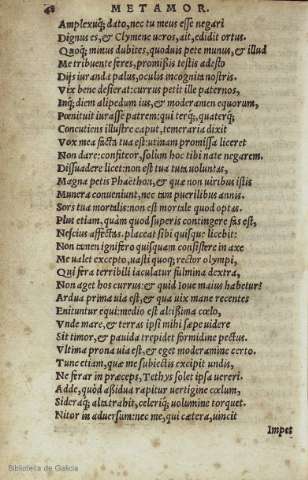 48 METAMOR.
Amplexuq; dato, nec tu meus esse negari
Dignus es, & Clymene ueros, ait, edidit ortus.
Quoq; minus dubites, quoduis pete munus, & illud
Me tribuente feres, promissis testis adesto
Dijs iuranda palus, oculis incognita nostris.
Vix bene desierat: currus petit ille paternos,
Inq; diem alipedum ius, & moderamen equorum,
Pœnituit iurasse patrem: qui terq;, quaterq;
Concutiens illustre caput, temeraria dixit
Vox mea facta tua est: utinam promissa liceret
Non dare: confiteor, solum hoc tibi nate negarem.
Dissuadere licet: non est tua tuta uoluntas,
Magna petis Phaëthon, & quæ non uiribus istis
Munera conueniunt, nec tam puerilibus annis.
Sors tua mortalis: non est mortale quod optas.
Plus etiam, quàm quod superis contingere fas est,
Nescius affectas. placeat sibi quisque licebit:
Non tamen ignifero quisquam consistere in axe
Me ualet excepto, uasti quoq; rector olympi,
Qui fera terribili iaculatur fulmina dextra,
Non aget hos currus: & quid Ioue maius habetur?
Ardua prima uia est, & qua uix mane recentes
Enituntur equi: medio est altissima cœlo,
Vnde mare, & terras ipsi mihi sæpe uidere
Sit timor, & pauida trepidet formidine pectus.
Vltima prona uia est, & eget moderamine certo.
Tunc etiam, quæ me subiectis excipit undis,
Ne ferar in præceps, Tethys solet ipsa uereri.
Adde, quòd assidua rapitur uertigine cœlum,
Sideraq; alta trahit, celeriq; uolumine torquet.
Nitor in aduersum: nec me, qui cætera, uincit
Impet
Biblioteca de Galicia